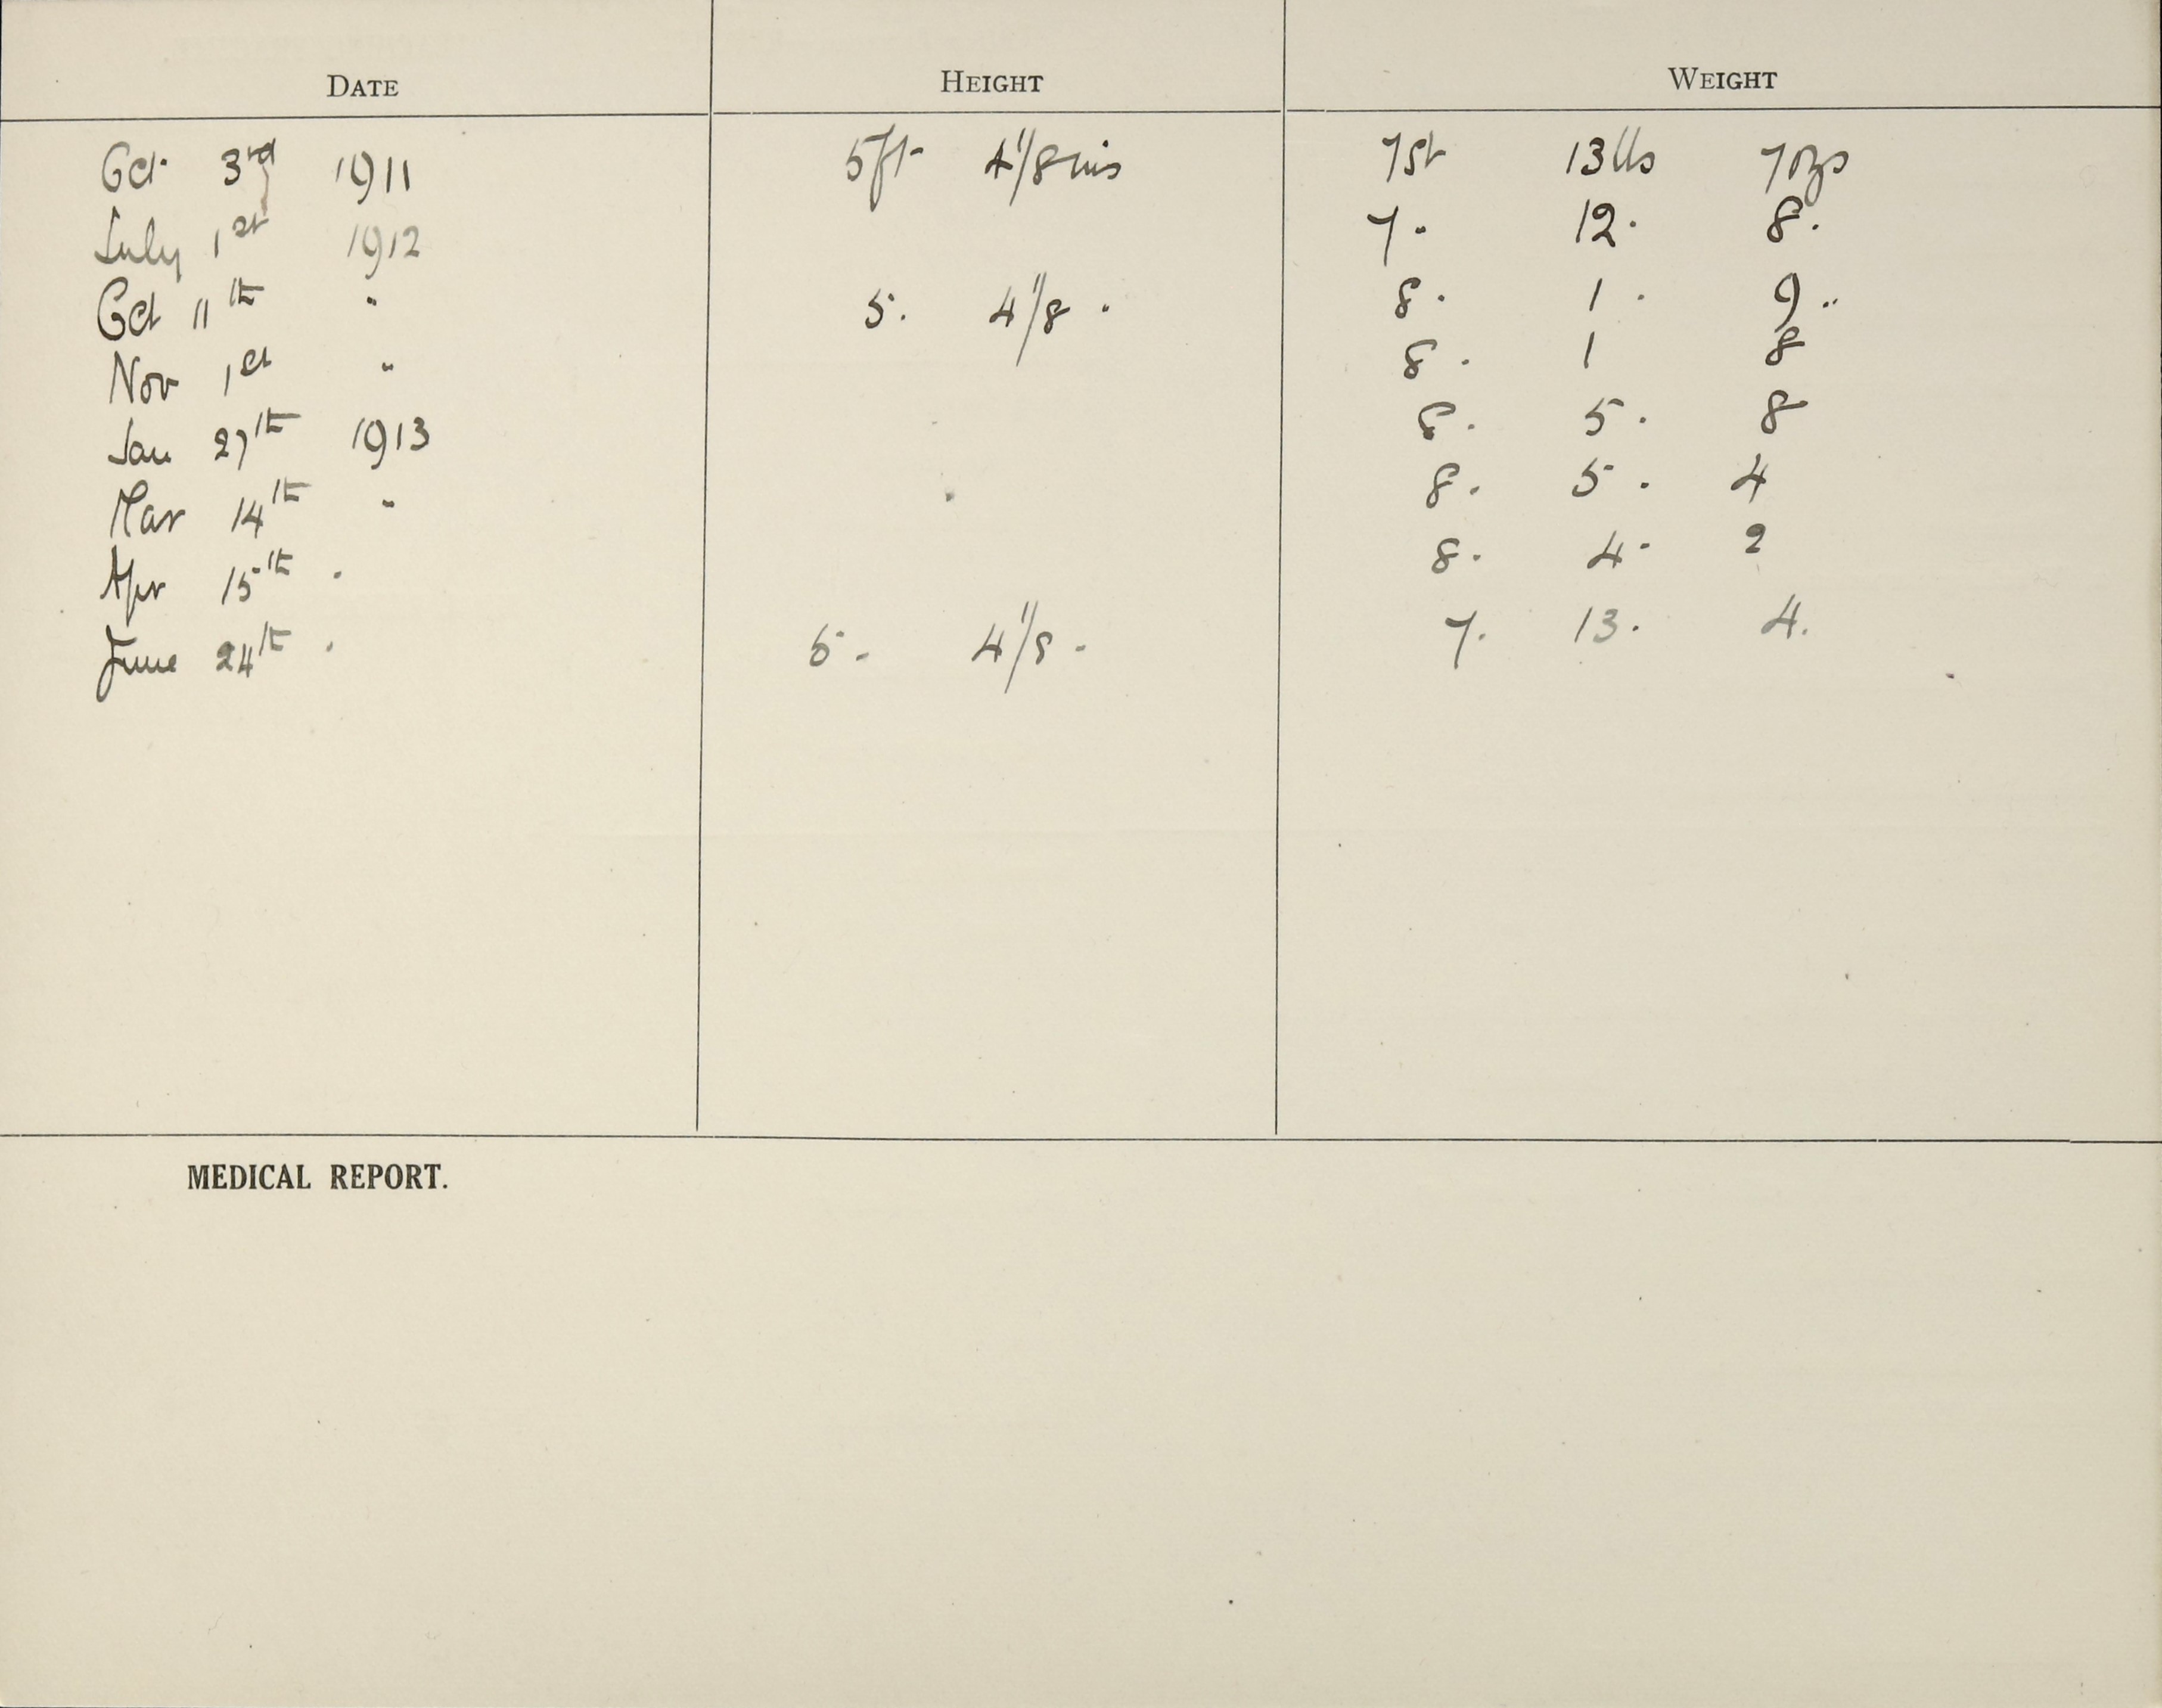 DATE HEIGHT WEIGHT
Oct. 3rd 1911 5ft- 4 1/8 ins 7st 13lbs 7ozs
July 1st 1912 7. 12. 8.
Oct 11th " 5. 4 1/8 . 8. 1. 9..
Nov 1st " 8. 1 8
Jan 27th 1913 8. 5. 8
Mar 14th " 8. 5. 4
Apr 15th . 8. 4. 2
June 24th . 5. 4 1/8 . 7. 13. 4.
MEDICAL REPORT.